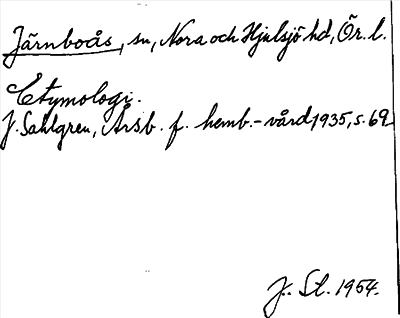 Järnboås, sn, Nora och Hjulsjö hd, Ör. l.
Etymologi.
J. Sahlgren, Årsb. f. hemb.-vård 1935, s. 69
J. St. 1954.